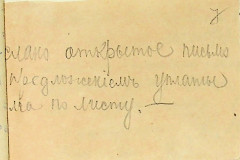 7
слано открытое письмо
предложеніемъ уплаты
по листу. —